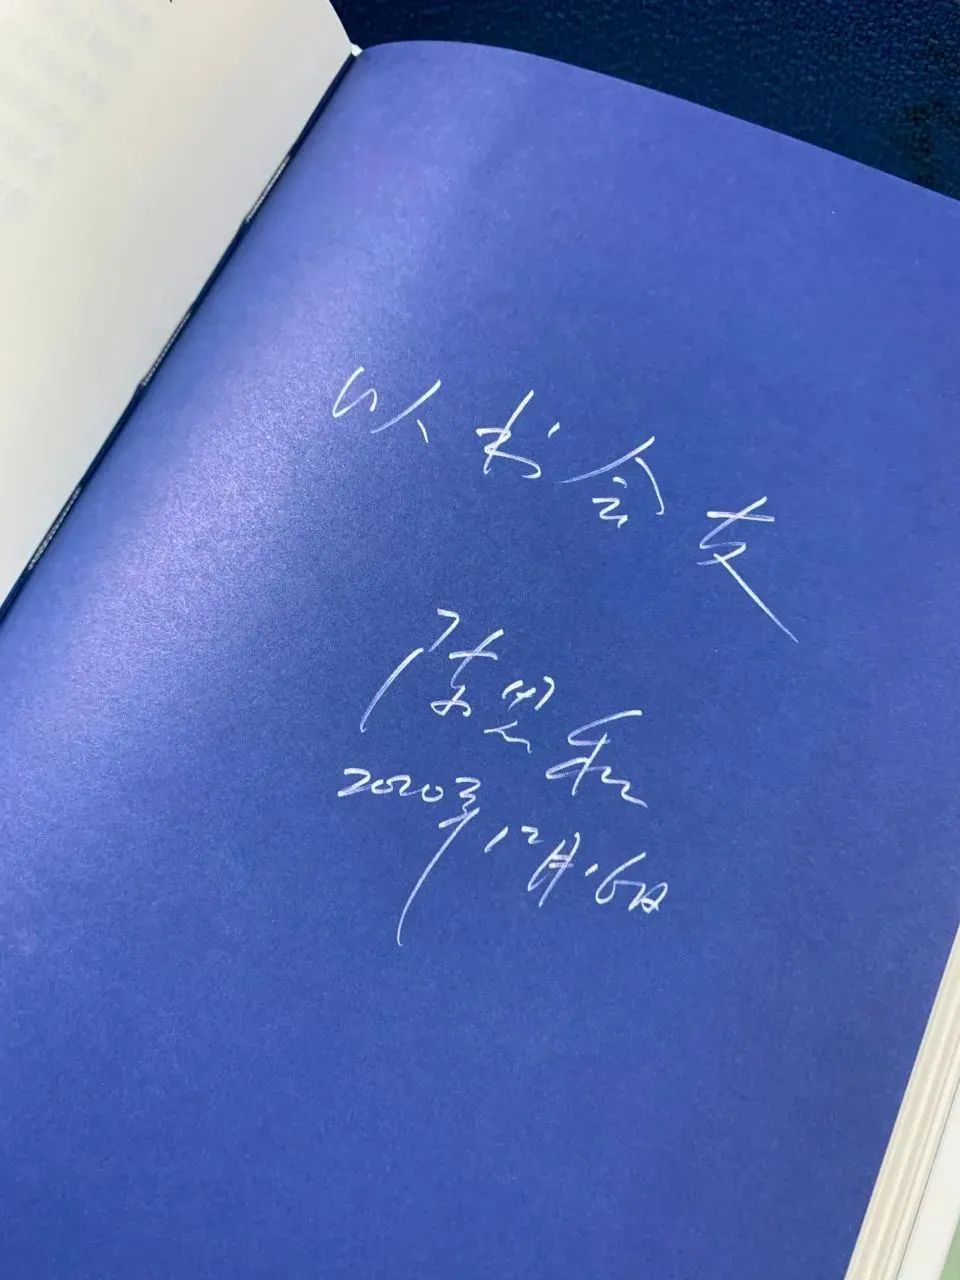 以书会友
陈思和
2020年12月16日